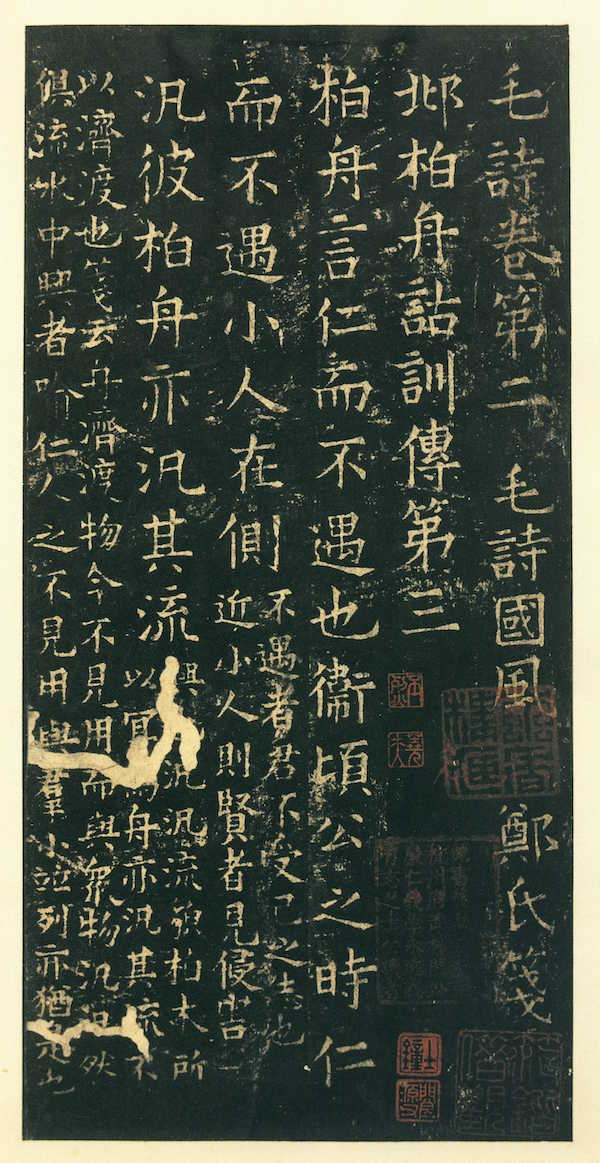 毛詩卷第二 毛詩國風 鄭氏箋
邶柏舟詁訓傳第三
柏舟言仁而不遇也衞頃公之時仁
而不遇小人在側
不遇者君不受己之志也
近小人則賢者見侵害
汎彼柏舟亦汎其流
興汎汎流皃柏木所
以宜舟亦汎其流不
以濟渡也箋云舟濟渡物今不見用而與衆物汎汎然
俱流水中興者喻仁人之不見用與羣小並列亦猶是也
士鐘
閬源父